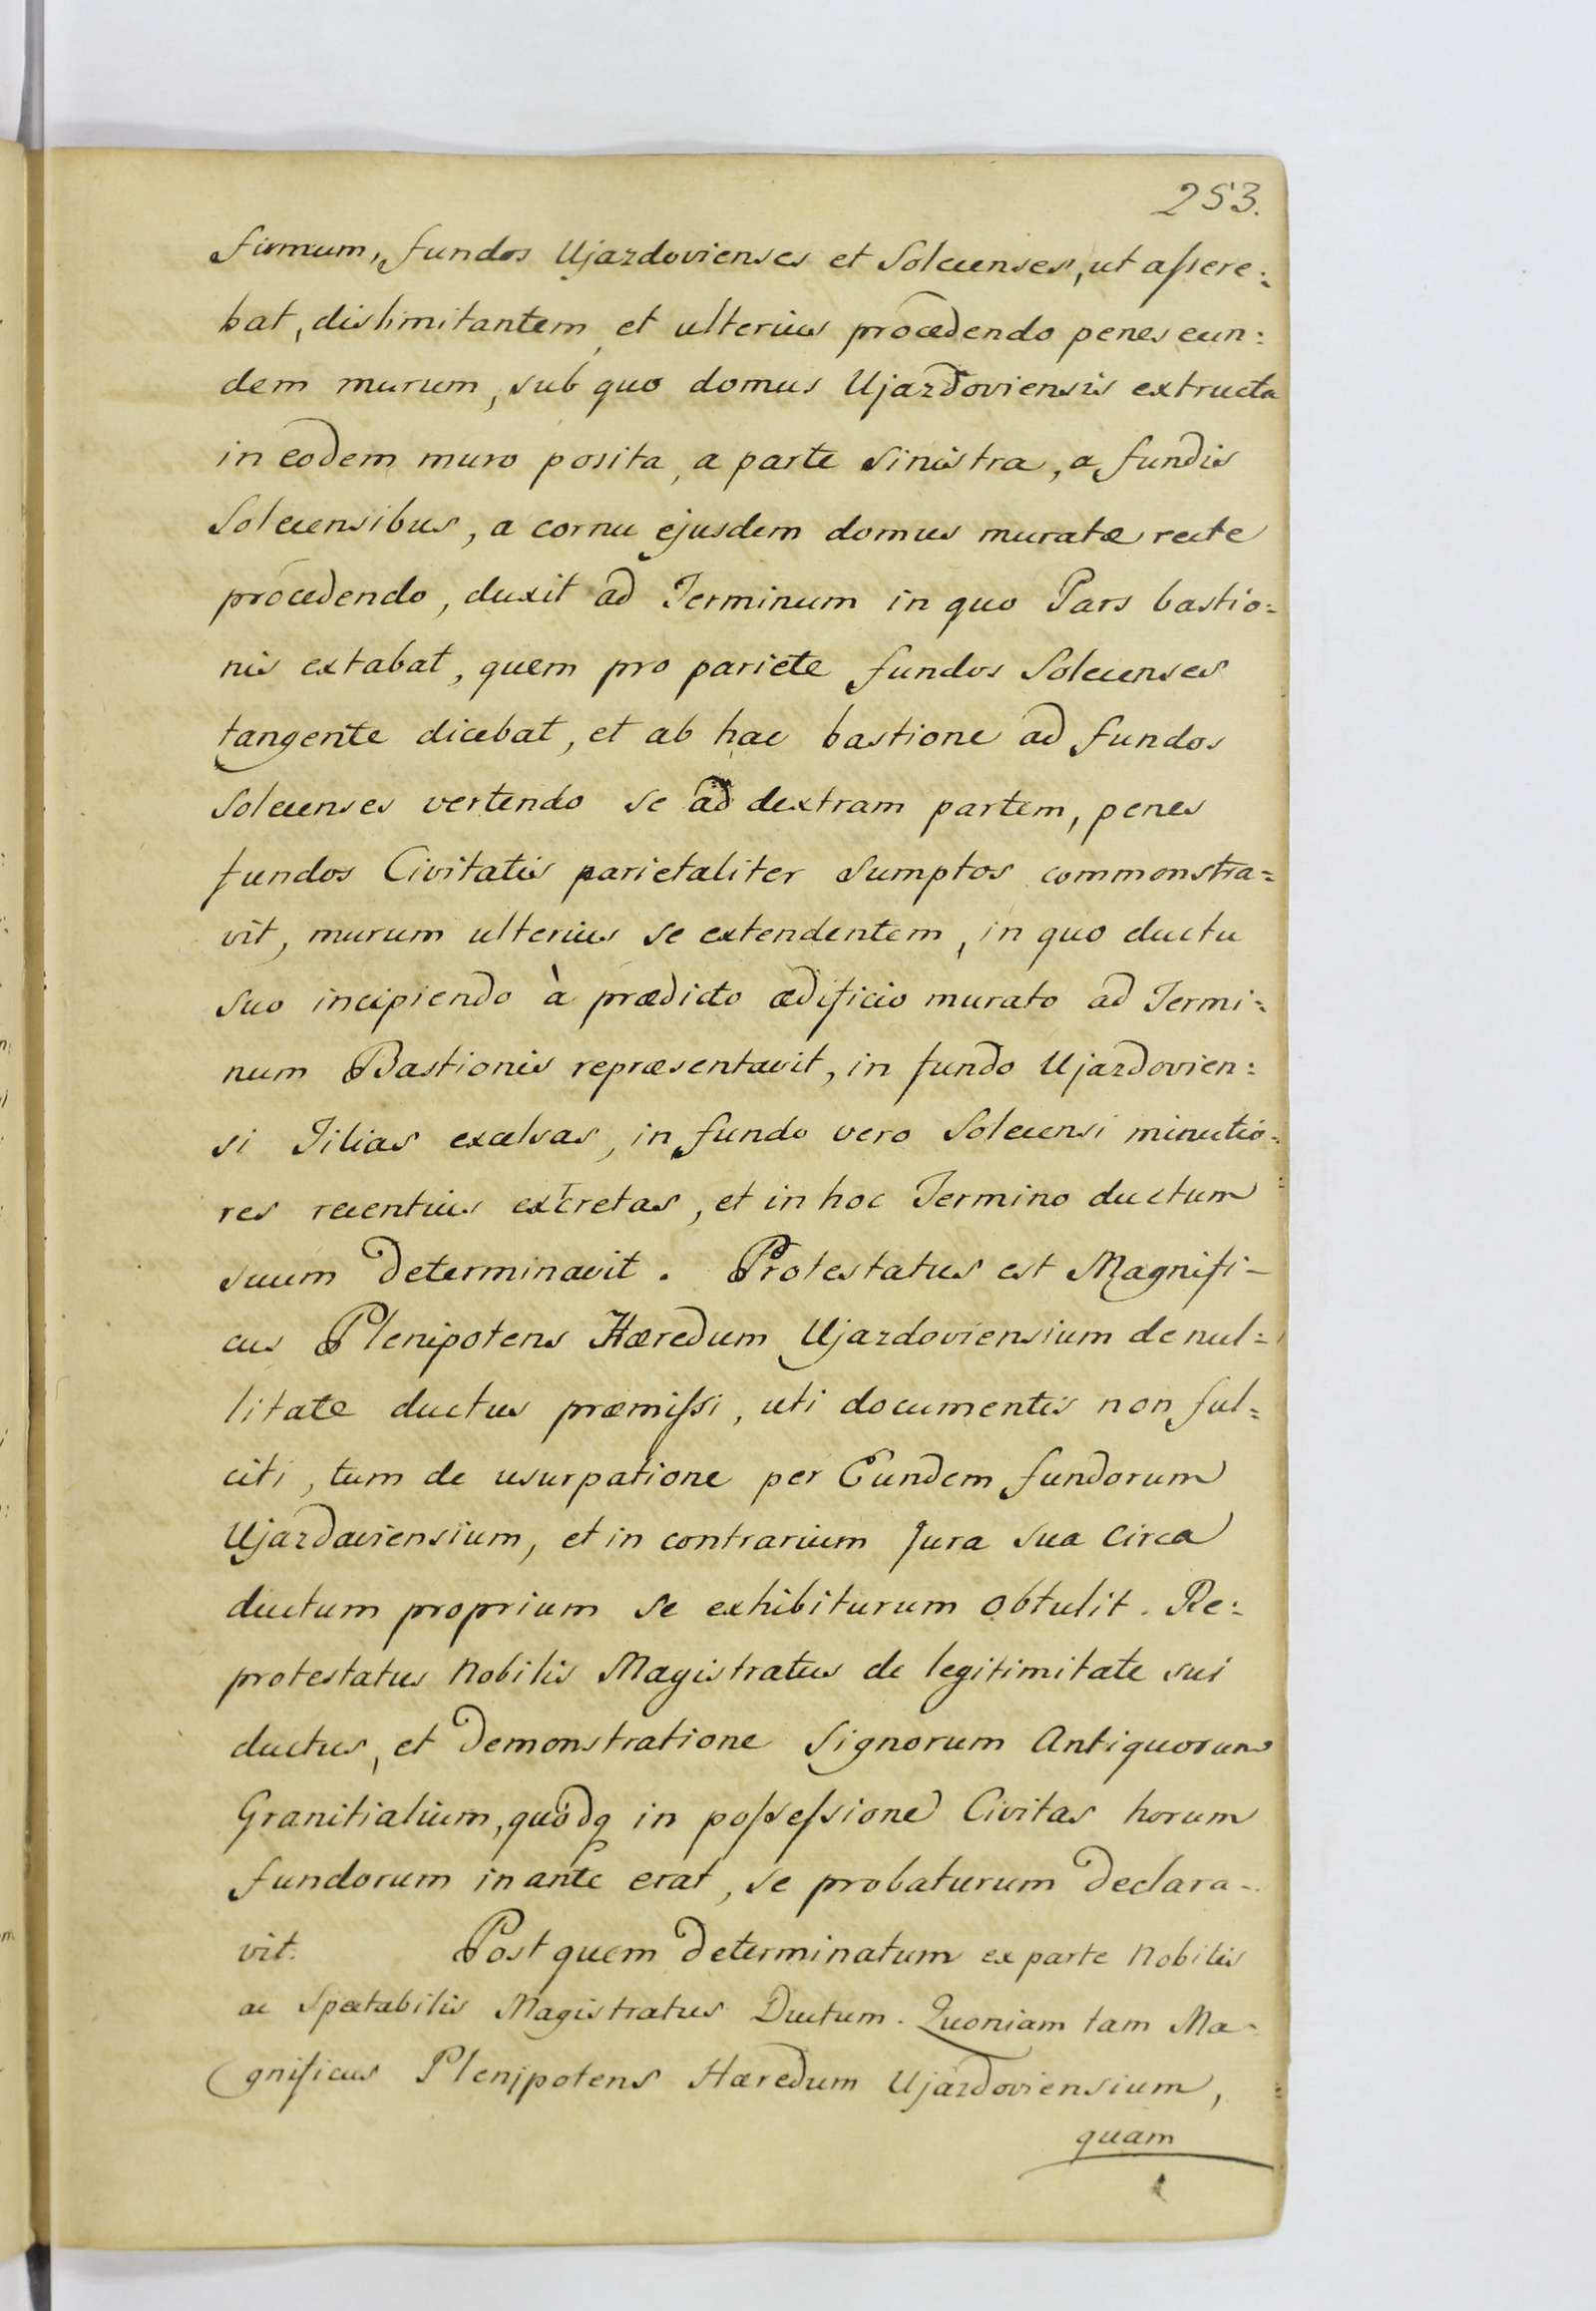 253.
firmum, fundos Ujazdovienses et Solecenses, ut assere:
bat, dislimitantem, et ulterius procedendo penes eun:
dem murum, sub quo domus Ujazdoviensis extructa
in eodem muro posita, a parte sinistra, a fundis
Solecensibus, a cornu ejusdem domus muratæ recte
procedendo, duxit ad Terminum in quo Pars bastio=
nis extabat, quem pro pariete fundos Solecenses
tangente dicebat, et ab hac bastione ad fundos
Solecenses vertendo se ad dextram partem, penes
fundos Civitatis parietaliter sumptos commonstra=
vit, murum ulterius se extendentem, in quo ductu
suo incipiendo à prædicto ædificio murato ad Termi=
num Bastionis repræsentavit, in fundo Ujazdovien:
si Tilias excelsas, in fundo vero Solecensi minutio=
res recentius excretas, et in hoc Termino ductum
suum determinavit. Protestatus est Magnifi-
cus Plenipotens Hæredum Ujazdoviensium de nul=
litate ductus præmissi, uti documentis non ful=
citi, tum de usurpatione per Eundem fundorum
Ujazdaviensium, et in contrarium Jura sua circa
ductum proprium se exhibiturum obtulit. Re:
protestatus Nobilis Magistratus de legitimitate sui
ductus, et demonstratione Signorum Antiquorum
Granitialium, quòdq in possessione Civitas horum
fundorum in ante erat, se probaturum declara-
vit. Post quem determinatum ex parte Nobilis
ac Spectabilis Magistratus Ductum. Quoniam tam Ma-
gnificus Plenipotens Hæredum Ujazdoviensium,
quam